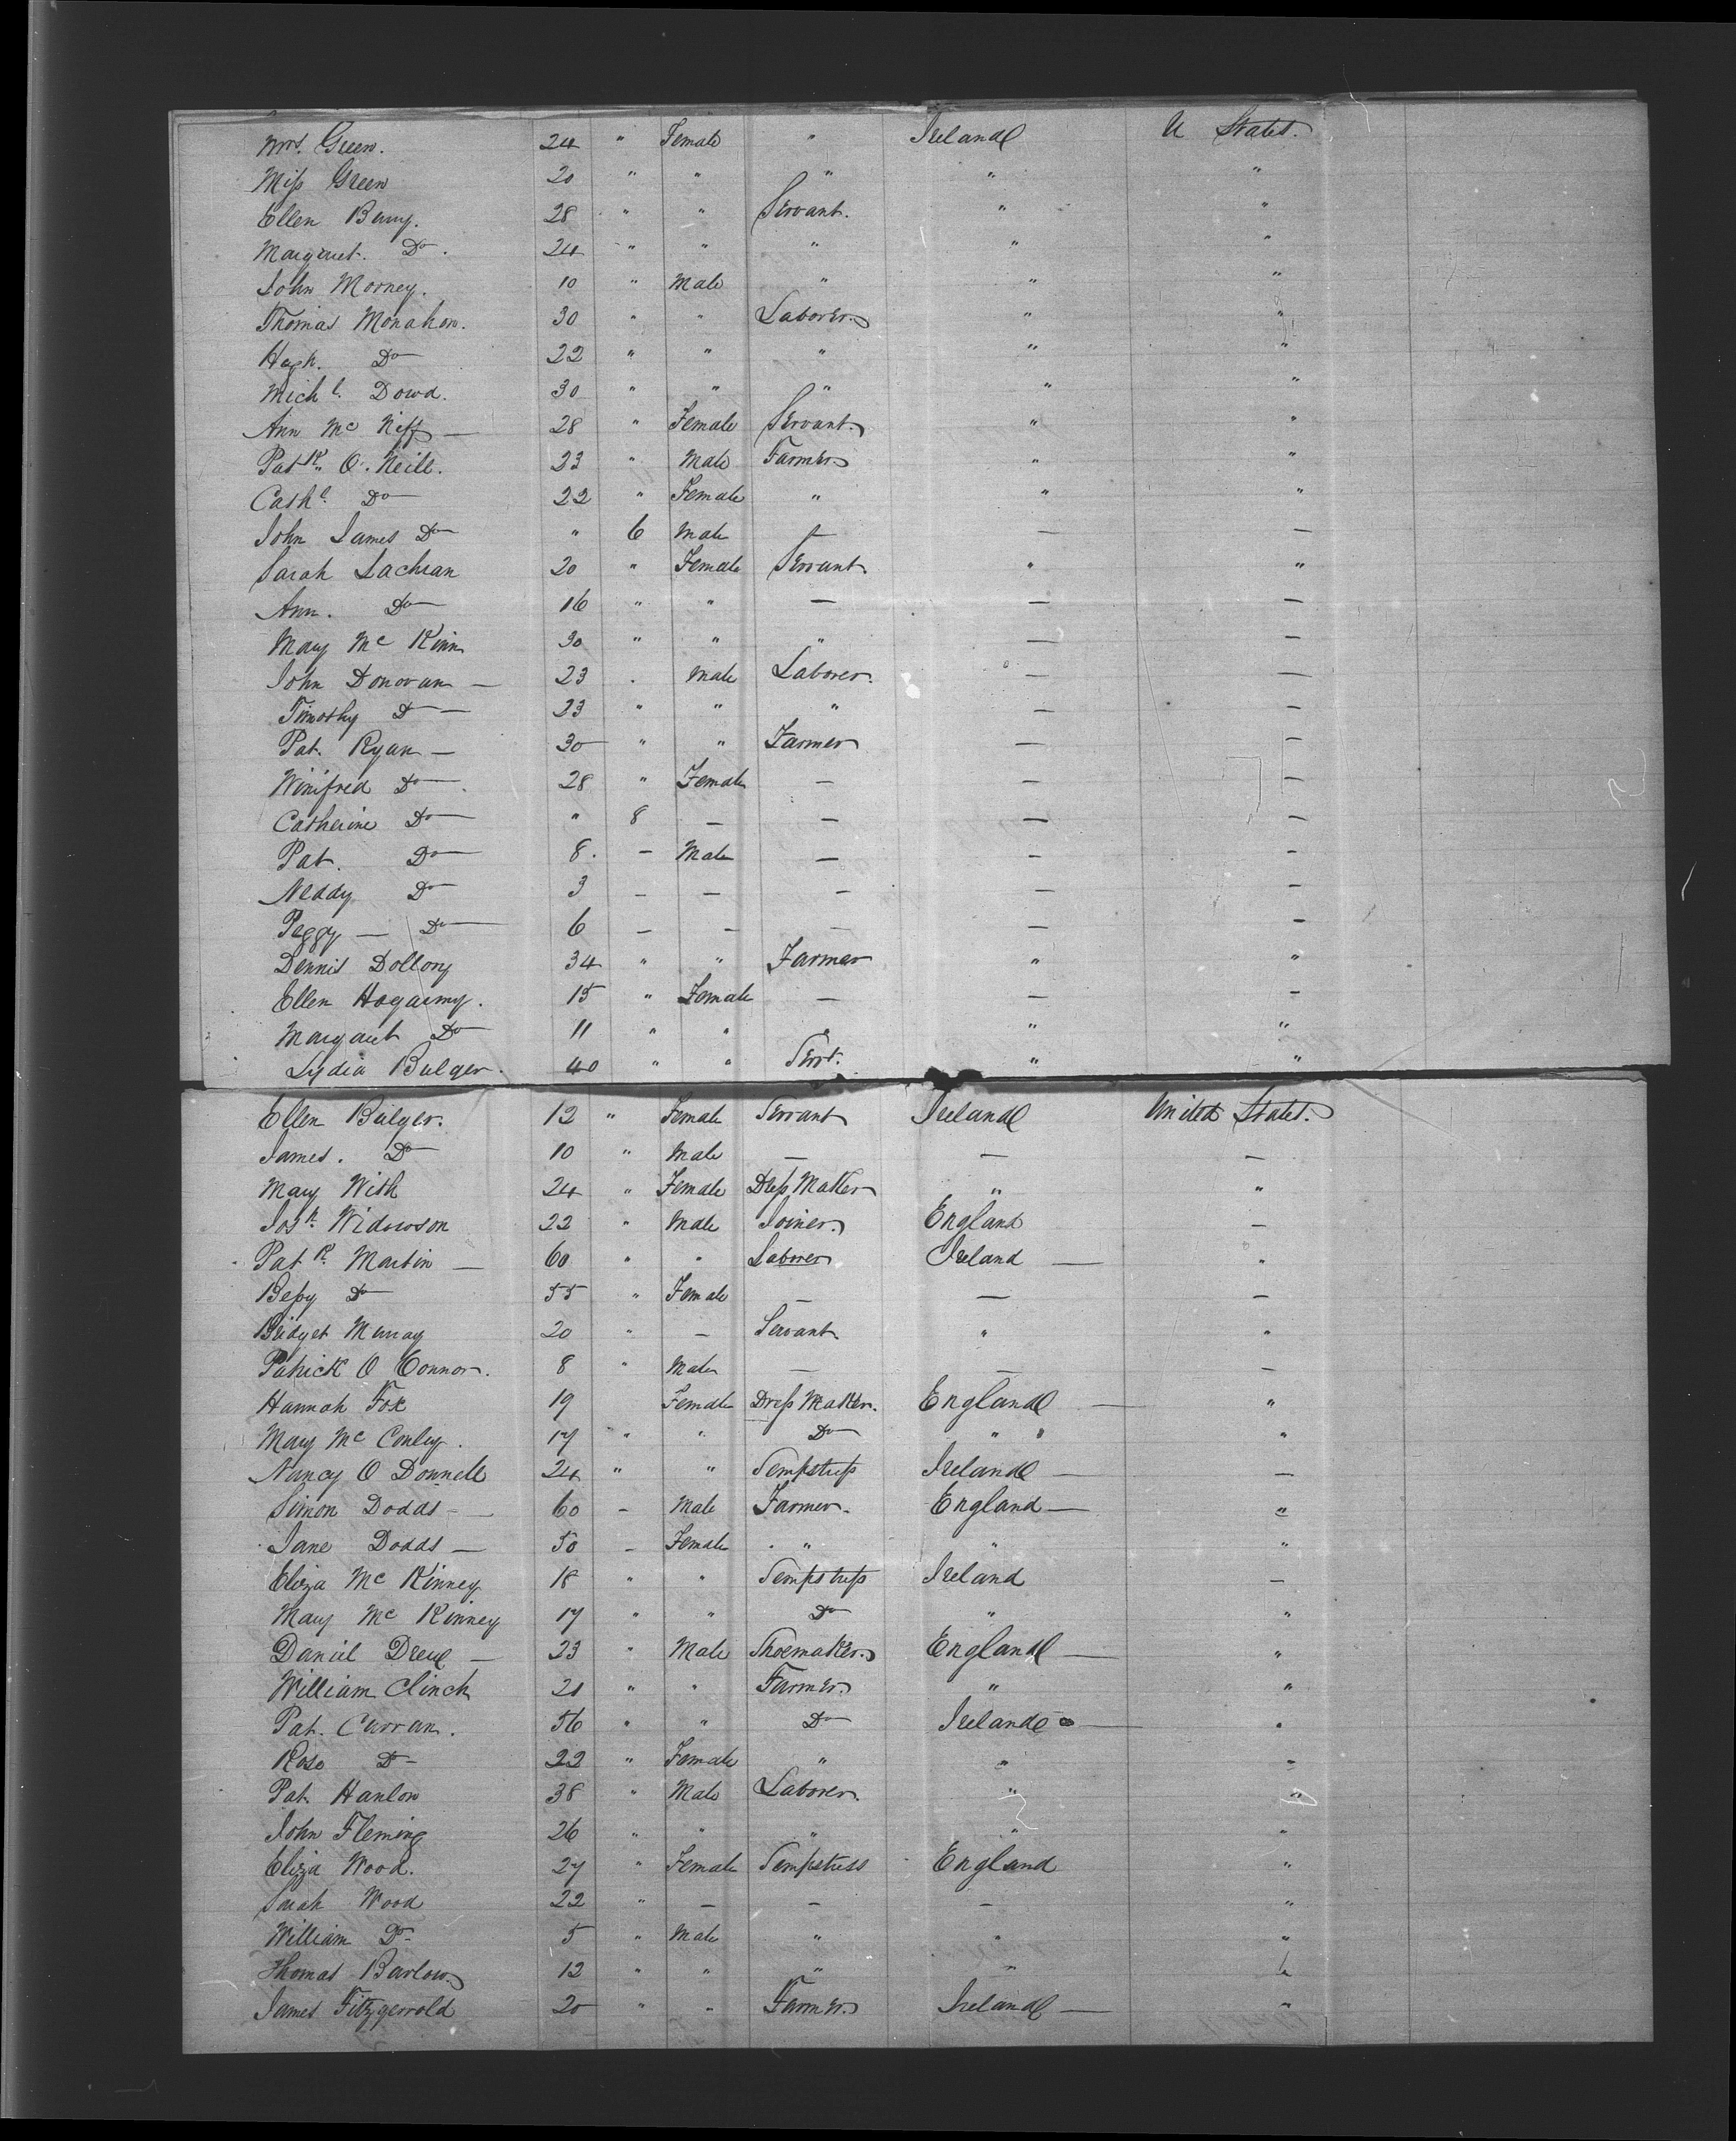 Mrs. Green. 24 " Female " Ireland U States.
Miss Green 20 " " " " "
Ellen Barry. 28 " " Servant. " "
Margaret. Do. 24 " " " " "
John Morney. 10 " Male " " "
Thomas Monahan. 30 " " Laborer. " "
Hugh. Do 22 " " " " "
Michl. Dowd. 30 " " " " "
Ann Mc Niff — 28 " Female Servant. " "
Patk. O. Neill. 23 " Male Farmer. " "
Cathe. Do 22 " Female " " "
John James Do " 6 Male — — —
Sarah Lachran 20 " Female Servant. " "
Ann. Do 16 " " — — —
Mary Mc Kinn 30 " " " — —
John Donovan — 23 . Male Laborer. — —
Timothy D— 23 " " " — —
Pat. Ryan — 30 " " Farmer — —
Winifred Do 28 " Female — — —
Catherine Do " 8 — — — —
Pat. Do 8. — Male — — —
Neddy Do 3 — — — — —
Peggy — Do 6 — — — — —
Dennis Dollony 34 " " Farmer " "
Ellen Hogarmy. 15 " Female — — —
Margaret Do 11 " " " " "
Lydia Bulger. 40 " " Servt. " "
Ellen Bulger. 12 " Female Servant Ireland United States.
James. Do 10 " Male — — —
Mary With 24 " Female Dress Maker " "
Josh. Widowson 22 " Male Joiner. England —
Patk. Martin — 60 " " Laborer Ireland — "
Bessy Do 55 " Female — — —
Bridget Murray 20 " — Servant " "
Patrick O Connor. 8 " Male — — —
Hannah Fox 19 Female Dress Maker. England — "
Mary Mc Conley. 17 " " Do " "
Nancy O Donnell 24 " " Sempstress Ireland — —
Simon Dodds — 60 — Male Farmer. England — "
Jane Dodds — 50 — Female " " "
Eliza Mc Kinney 18 " " Sempstress Ireland —
Mary Mc Kinney 17 " " Do " "
Daniel Drew — 23 " Male Shoemaker. England — "
William Clinch 21 " " Farmer. " "
Pat. Curran. 56 " " Do Ireland — "
Rose D— 22 " Female " " "
Pat Hanlon 38 " Male Laborer. " "
John Fleming 26 " " " " "
Eliza Wood. 27 " Female Sempstress England "
Sarah Wood 22 " — — — "
William Do 5 " Male " " "
Thomas Barlow. 12 " " " " "
James Fitzgerrold 20 " " Farmer. Ireland — "